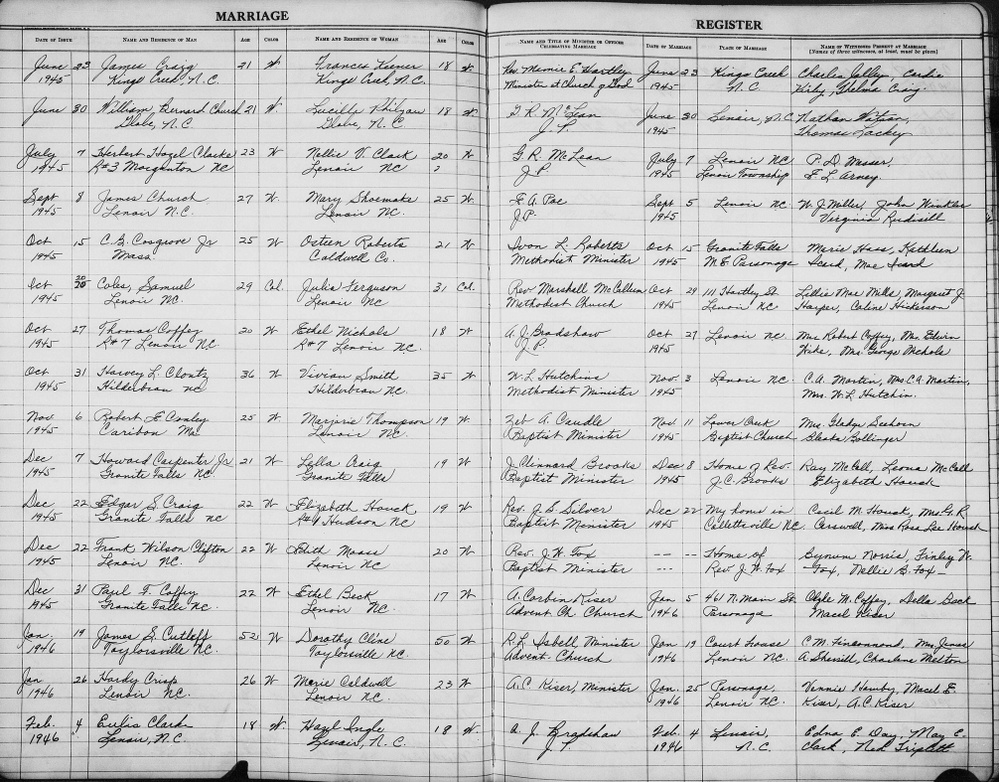 MARRIAGE
REGISTER
DATE OF ISSUE NAME AND RESIDENCE OF MAN AGE COLOR NAME AND RESIDENCE OF WOMAN AGE COLOR NAME AND TITLE OF MINISTER OR OFFICER DATE OF MARRIAGE PLACE OF MARRIAGE NAME OF WITNESSES PRESENT AT MARRIAGE
CELEBRATING MARRIAGE (Names of three witnesses, at least, must be given)
June 23 James Craig 21 W. Frances Keener 18 W Rev. Mamie E. Hartley June 23 Kings Creek Charles Jolley, Cordie
1945 Kings Creek, N.C. Kings Creek, N.C. Minister of Church of God 1945 N.C. Kirby, Thelma Craig
June 30 William Bernard Church 21 W. Lucille 18 W. G. R. McLean June 30 Lenoir, N.C. Nathan Watson,
1945 Globe, N.C. Globe, N.C. J.P. 1945 Thomas Lackey
July 7 Herbert Hazel Clarke 23 W Nellie V. Clark 20 W G. R. McLean July 7 Lenoir NC P. D. Messer,
1945 R#3 Morganton NC Lenoir NC J.P. 1945 Lenoir Township E. L. Arney.
Sept 8 James Church 27 W. Mary Shoemake 25 W F. A. Poe Sept 5 Lenoir NC W. J. Miller, John Winkler
1945 Lenoir N.C. Lenoir NC. J.P. 1945 Virginia Rudisill
Oct 15 C. G. Cosgrove Jr 25 W Osteen Roberts 21 W Ivon L. Roberts Oct 15 Granite Falls Marie Hass, Kathleen
1945 Mass. Caldwell Co. Methodist Minister 1945 M.E. Parsonage Icard, Mae Icard
Oct 20 Coles, Samuel 29 Col. Julia Ferguson 31 Col. Rev. Marshall McCallum Oct 29 111 Hartley St Lillie Mae Mills, Margaret J.
1945 Lenoir NC. Lenoir NC Methodist Church 1945 Lenoir NC Harper, Caline Hickerson
Oct 27 Thomas Coffey 20 W Ethel Nichols 18 W A. J. Bradshaw Oct 27 Lenoir NC. Mrs Robert Coffey, Mrs. Edwin
1945 R#7 Lenoir NC R#7 Lenoir NC. J.P. 1945 Mrs. George Nichols
Oct 31 Harvey L. Clontz 36 W Vivian Smith 35 W W. L. Hutchins Nov. 3 Lenoir NC. C.A. Martin, Mrs. C.A. Martin,
1945 Hildebran NC Hildebran NC. Methodist Minister 1945 Mrs. W. L. Hutchin.
Nov 6 Robert F Conley 25 W Marjorie Thompson 19 W Zeb A. Caudle Nov 11 Lower Creek Mrs. Gladys Seehorn
1945 Caribou Me. Lenoir NC. Baptist Minister 1945 Baptist Church Blake Bollinger
Dec 7 Howard Carpenter Jr 21 W Lylla Craig 19 W J. Clinnard Brooks Dec 8 Home of Rev. Ray McCall, Leona McCall
1945 Granite Falls NC. Granite Falls Baptist Minister 1945 J.C. Brooks Elizabeth Houck
Dec 22 Edgar S. Craig 22 W Elizabeth Houck 19 W Rev. J. D. Silver Dec 22 My home in Cecil M. Houck, Mrs. G. R.
1945 Granite Falls NC R#1 Hudson NC Baptist Minister 1945 Collettsville NC. Cerswell, Miss Rosa Lee Houck
Dec 22 Frank Wilson Clifton 22 W Edith Moass 20 W Rev. J. W. Fox --- -- Home of Bynum Norris, Finley W.
1945 Lenoir NC. Lenoir NC Baptist Minister --- Rev. J. W. Fox Fox, Nellie B. Fox —
Dec 31 Paul T. Coffey 22 W Ethel Beck 17 W A. Corbin Kiser Jan 5 461 N. Main St. Clyde M. Coffey, Della Beck
1945 Granite Falls NC. Lenoir NC. Advent Ch. Church 1946 Parsonage Macel Kiser
Jan. 19 James S. Cutleff 52 W Dorothy Cline 50 W R. L. Isbell Minister Jan 19 Court House C. M. Fincannond, Mrs. James
1946 Taylorsville NC. Taylorsville NC. Advent. Church 1946 Lenoir NC. A Sherrill, Charlene Melton
Jan 26 Hardy Crisp 26 W Marie Caldwell 23 W A.C. Kiser, Minister Jan. 25 Parsonage, Vennie Hamby, Macel E.
1946 Lenoir NC. Lenoir NC. 1946 Lenoir NC. Kiser, A.C. Kiser
Feb. 4 Eulis Clark 18 W. Hazel Ingle 18 W. A. J. Bradshaw Feb. 4 Lenoir, Edna E. Day, May E.
1946 Lenoir, N.C. Lenoir, N.C. J.P. 1946 N.C. Clark, Ned Triplett